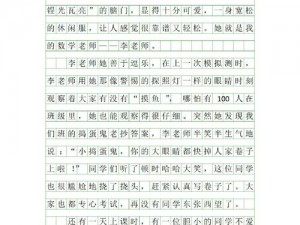 锃光瓦亮”的脑门，显得十分可爱，一身宽松
的休闲服，让人感觉很逗又轻松。她就是我
的数学老师——李老师。
李老师她善于逗乐，在上一次模拟测时，
李老师用她那像警惕的探照灯一样的眼睛时刻
观察着大家有没有“摸鱼”，哪怕有 100 人在
班级里，她也能观察得很仔细。突然她发现我
们班的捣蛋鬼老抄答案，李老师半笑半生气地
说：“小捣蛋，你的眼睛都快掉人家卷子
上啦！”同学们听了顿时哈哈大笑，这位同学
也很尴尬地挠了挠头，赶紧认真写卷子了。大
家也都专心考试，再没有同学东张西望了。
还有一天上课时，有一位胆小的同学不爱